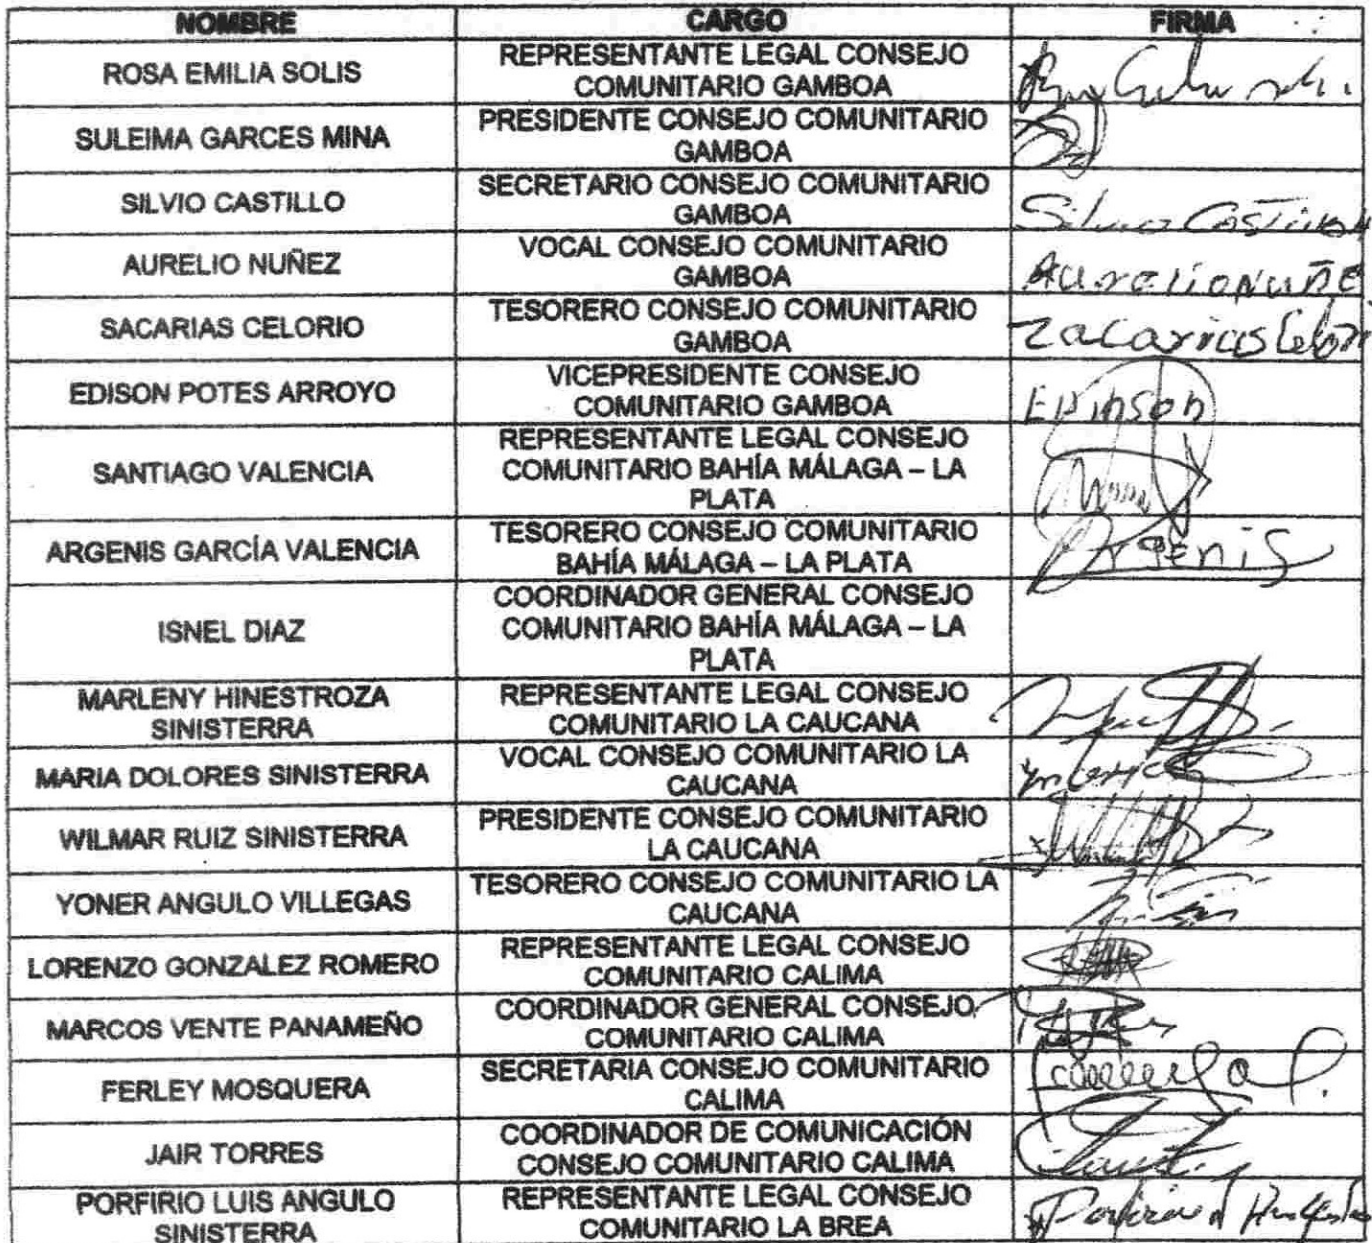 NOMBRE CARGO FIRMA
ROSA EMILIA SOLIS REPRESENTANTE LEGAL CONSEJO
COMUNITARIO GAMBOA
SULEIMA GARCES MINA PRESIDENTE CONSEJO COMUNITARIO
GAMBOA
SILVIO CASTILLO SECRETARIO CONSEJO COMUNITARIO
GAMBOA Silvio Castillo
AURELIO NUÑEZ VOCAL CONSEJO COMUNITARIO
GAMBOA AurelioNuñe
SACARIAS CELORIO TESORERO CONSEJO COMUNITARIO
GAMBOA Zacarias Celor
EDISON POTES ARROYO VICEPRESIDENTE CONSEJO
COMUNITARIO GAMBOA EDinson
SANTIAGO VALENCIA REPRESENTANTE LEGAL CONSEJO
COMUNITARIO BAHÍA MÁLAGA – LA
PLATA
ARGENIS GARCÍA VALENCIA TESORERO CONSEJO COMUNITARIO
BAHÍA MÁLAGA – LA PLATA Argenis
ISNEL DIAZ COORDINADOR GENERAL CONSEJO
COMUNITARIO BAHÍA MÁLAGA – LA
PLATA
MARLENY HINESTROZA REPRESENTANTE LEGAL CONSEJO
SINISTERRA COMUNITARIO LA CAUCANA
MARIA DOLORES SINISTERRA VOCAL CONSEJO COMUNITARIO LA
CAUCANA
WILMAR RUIZ SINISTERRA PRESIDENTE CONSEJO COMUNITARIO
LA CAUCANA
YONER ANGULO VILLEGAS TESORERO CONSEJO COMUNITARIO LA
CAUCANA
LORENZO GONZALEZ ROMERO REPRESENTANTE LEGAL CONSEJO
COMUNITARIO CALIMA
MARCOS VENTE PANAMEÑO COORDINADOR GENERAL CONSEJO
COMUNITARIO CALIMA
FERLEY MOSQUERA SECRETARIA CONSEJO COMUNITARIO
CALIMA
JAIR TORRES COORDINADOR DE COMUNICACIÓN
CONSEJO COMUNITARIO CALIMA
PORFIRIO LUIS ANGULO REPRESENTANTE LEGAL CONSEJO
SINISTERRA COMUNITARIO LA BREA